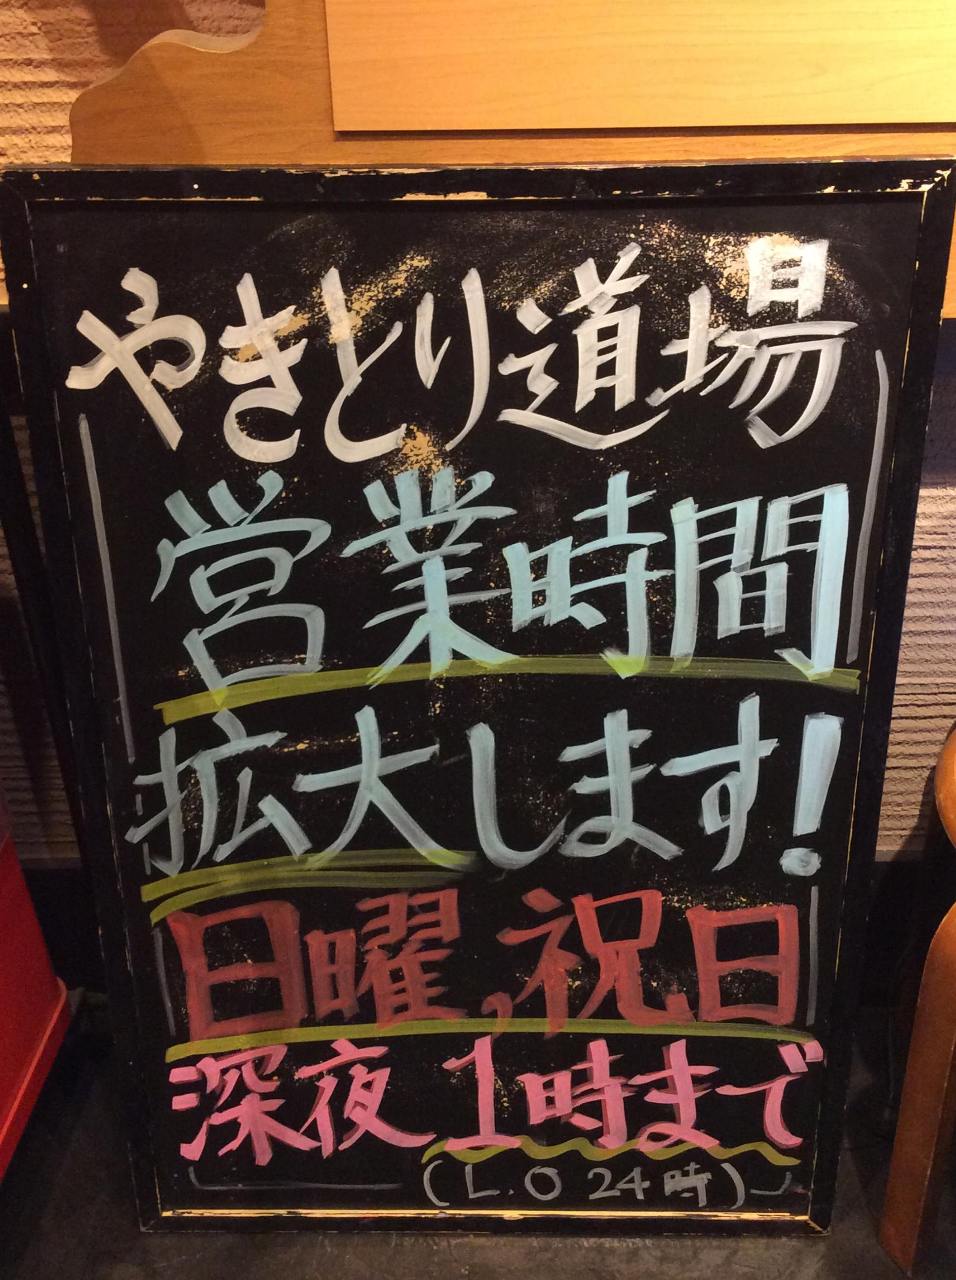 やきとり道場
営業時間
拡大します!
日曜,祝日
深夜1時まで
(L.O 24時)